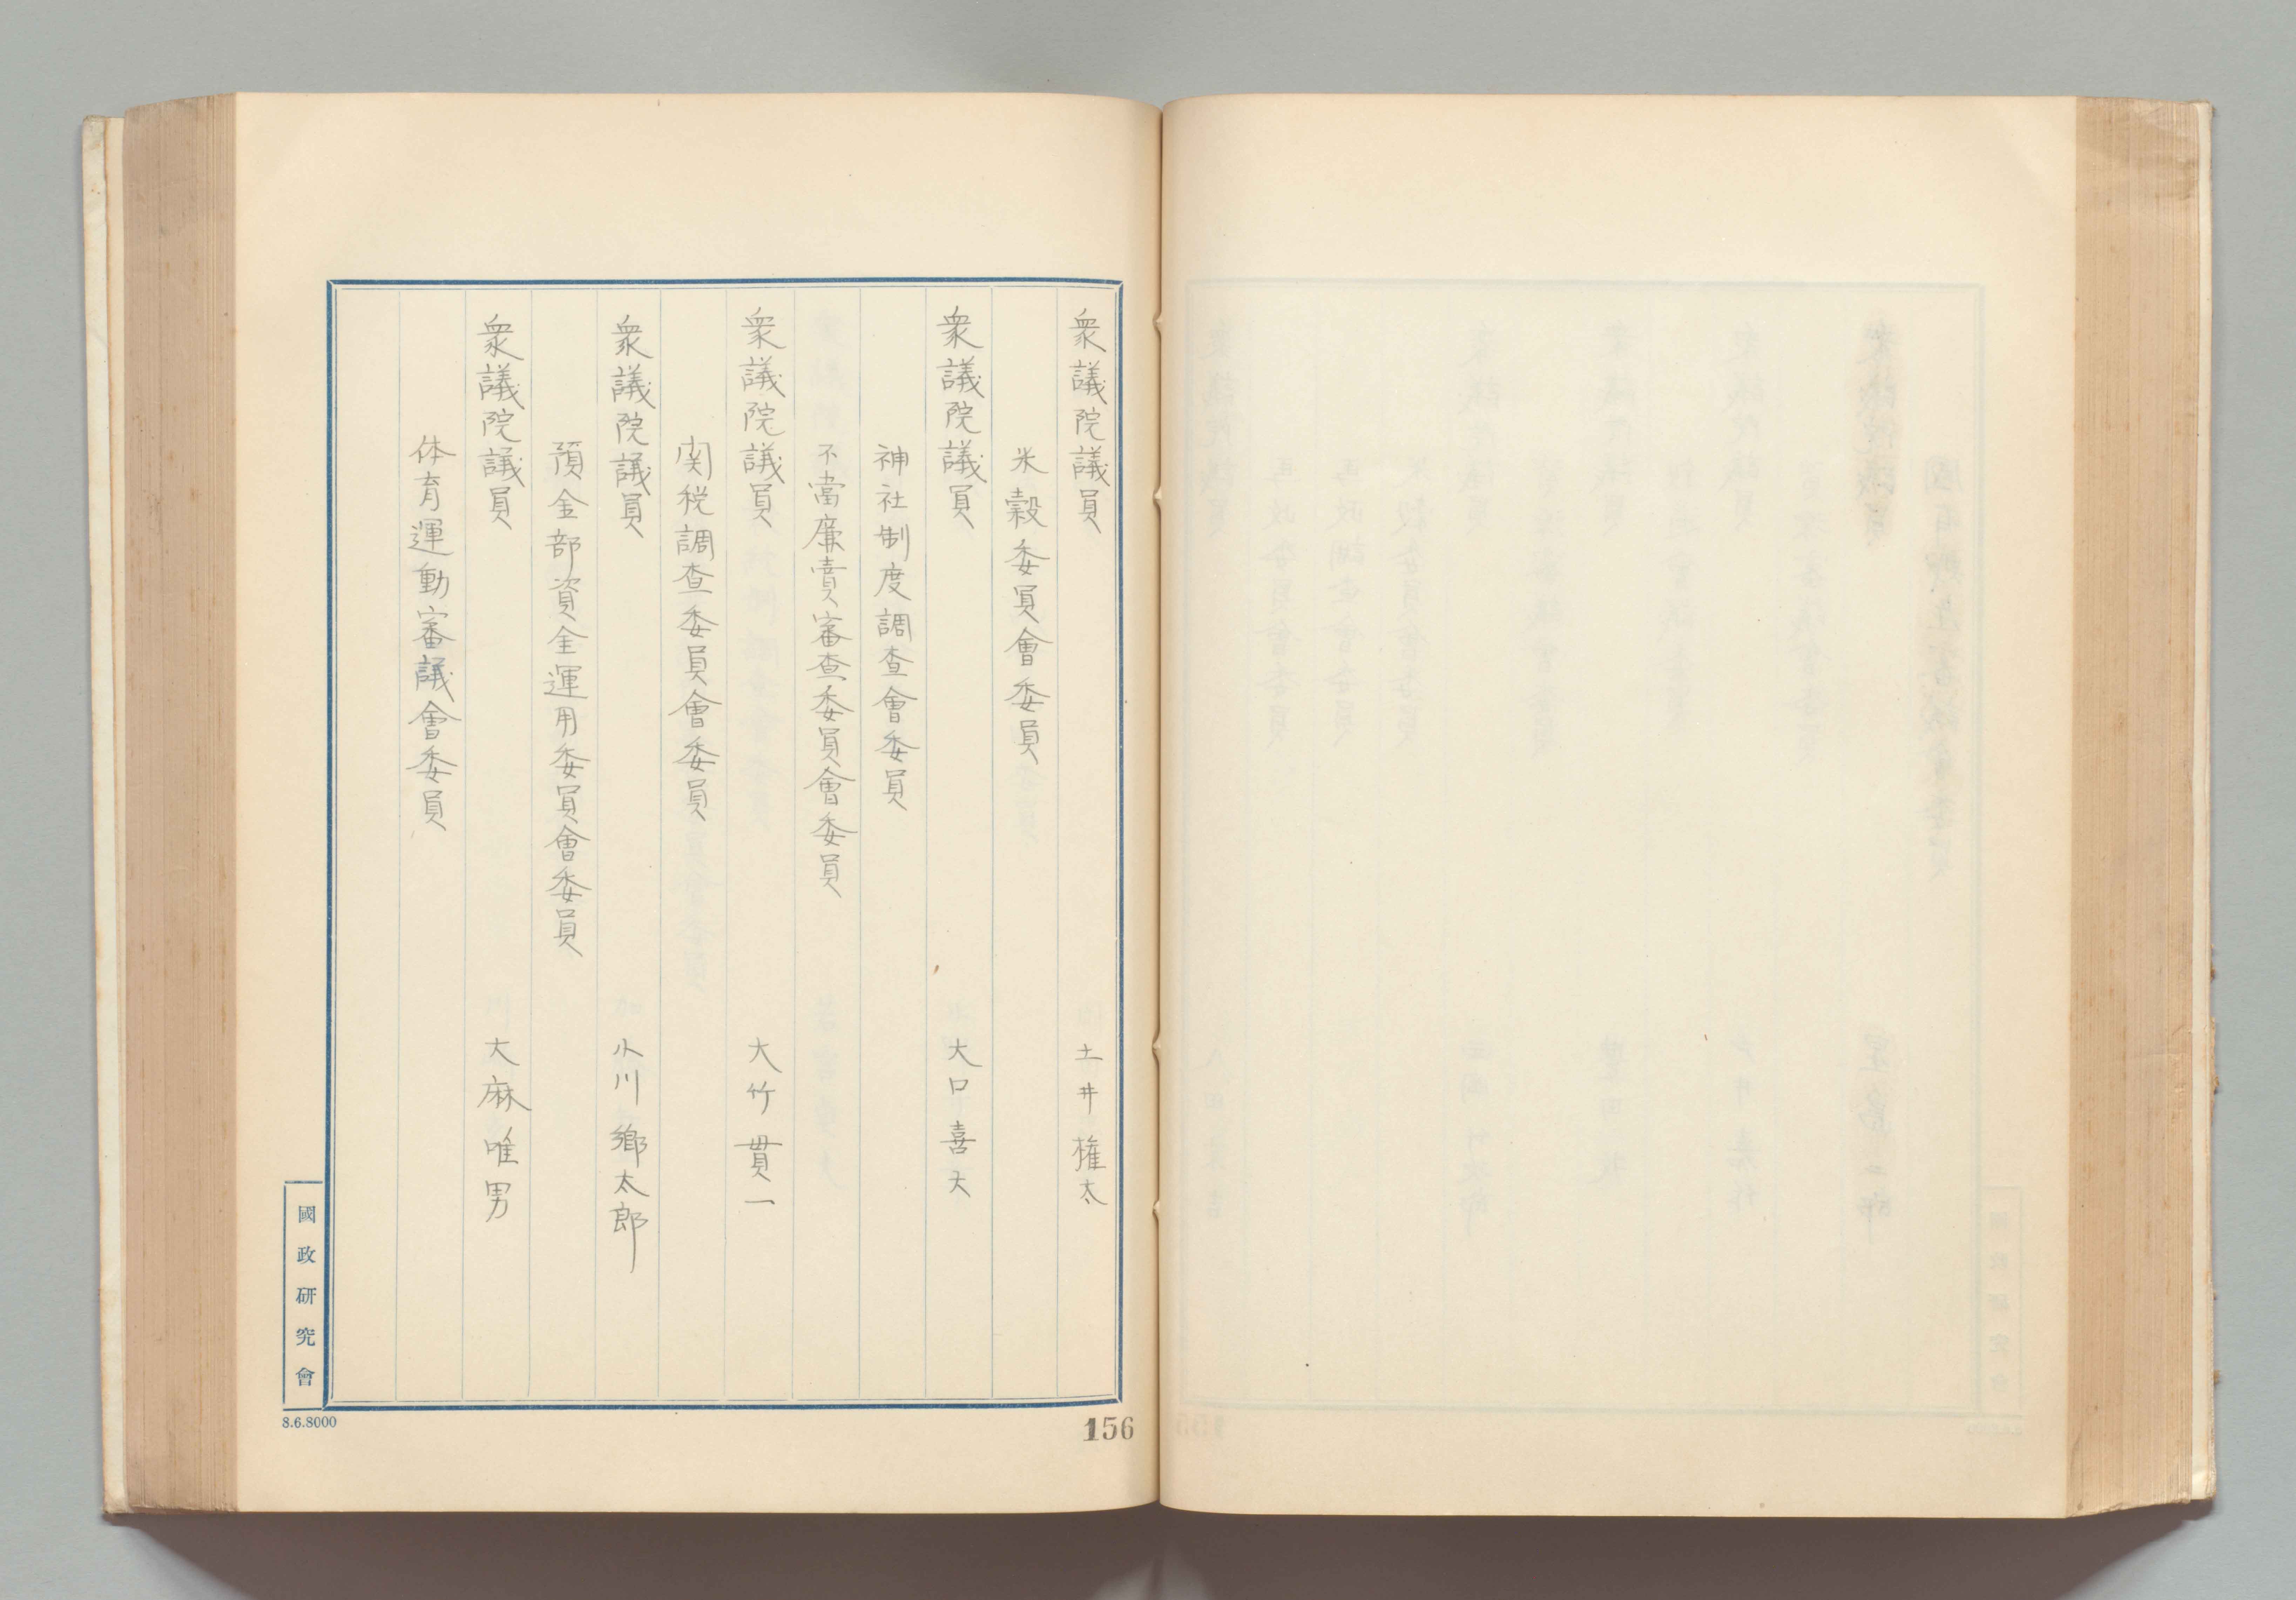 衆議院議員 土井権太
米穀委員會委員
衆議院議員 大口喜六
神社制度調査會委員
不當廉賣審査委員會委員
衆議院議員 大竹貫一
関税調査委員會委員
衆議院議員 小川郷太郎
預金部資金運用委員會委員
衆議院議員 大麻唯男
体育運動審議會委員
國政研究會
8.6.8000
156